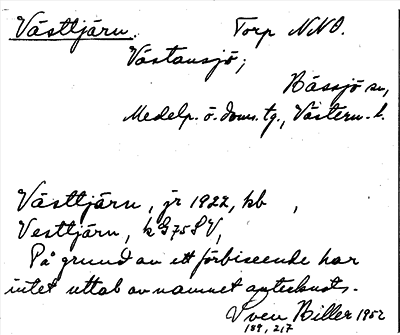 Västtjärn. Torp NNO.
Västansjö,
Råssjö sn,
Medelp. ö. doms. tg., Västern. l.
Västtjärn, jr 1922, kb ,
Vesttjärn, kG75SV,
På grund av ett förbiseende har
intet uttal av namnet antecknats.
Sven Biller 1952
189, 217